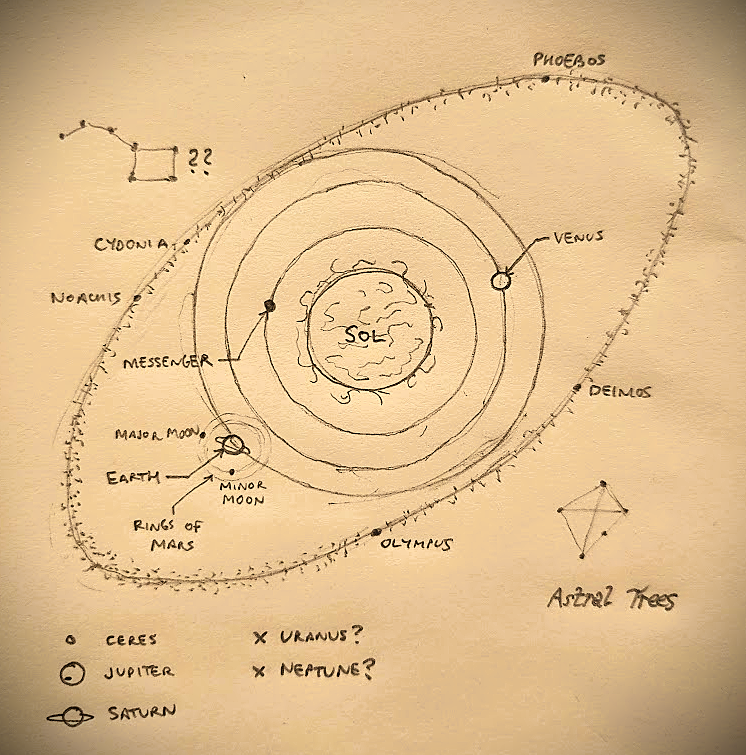 PHOEBOS
??
CYDONIA
VENUS
NOACHIS
SOL
MESSENGER
DEIMOS
MAJOR MOON
EARTH
MINOR
MOON
RINGS OF
MARS
OLYMPUS
Astral Trees
CERES
X URANUS?
JUPITER
X NEPTUNE?
SATURN